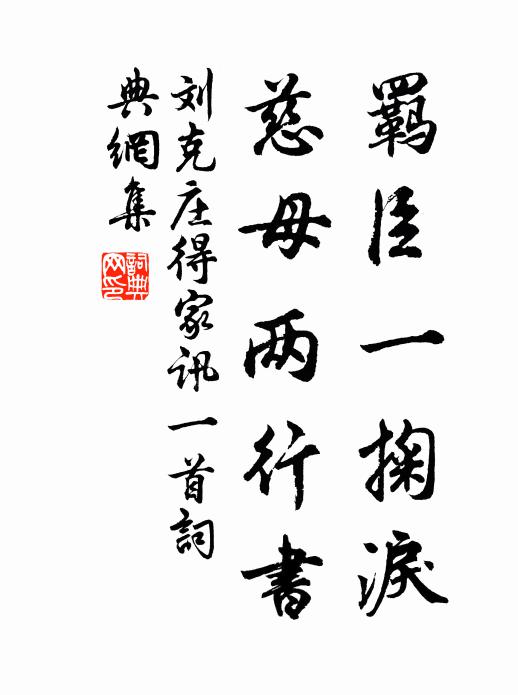 羈臣一掬淚
慈母两行書
刘克庄得家讯一首詞
典網集
詞典网印